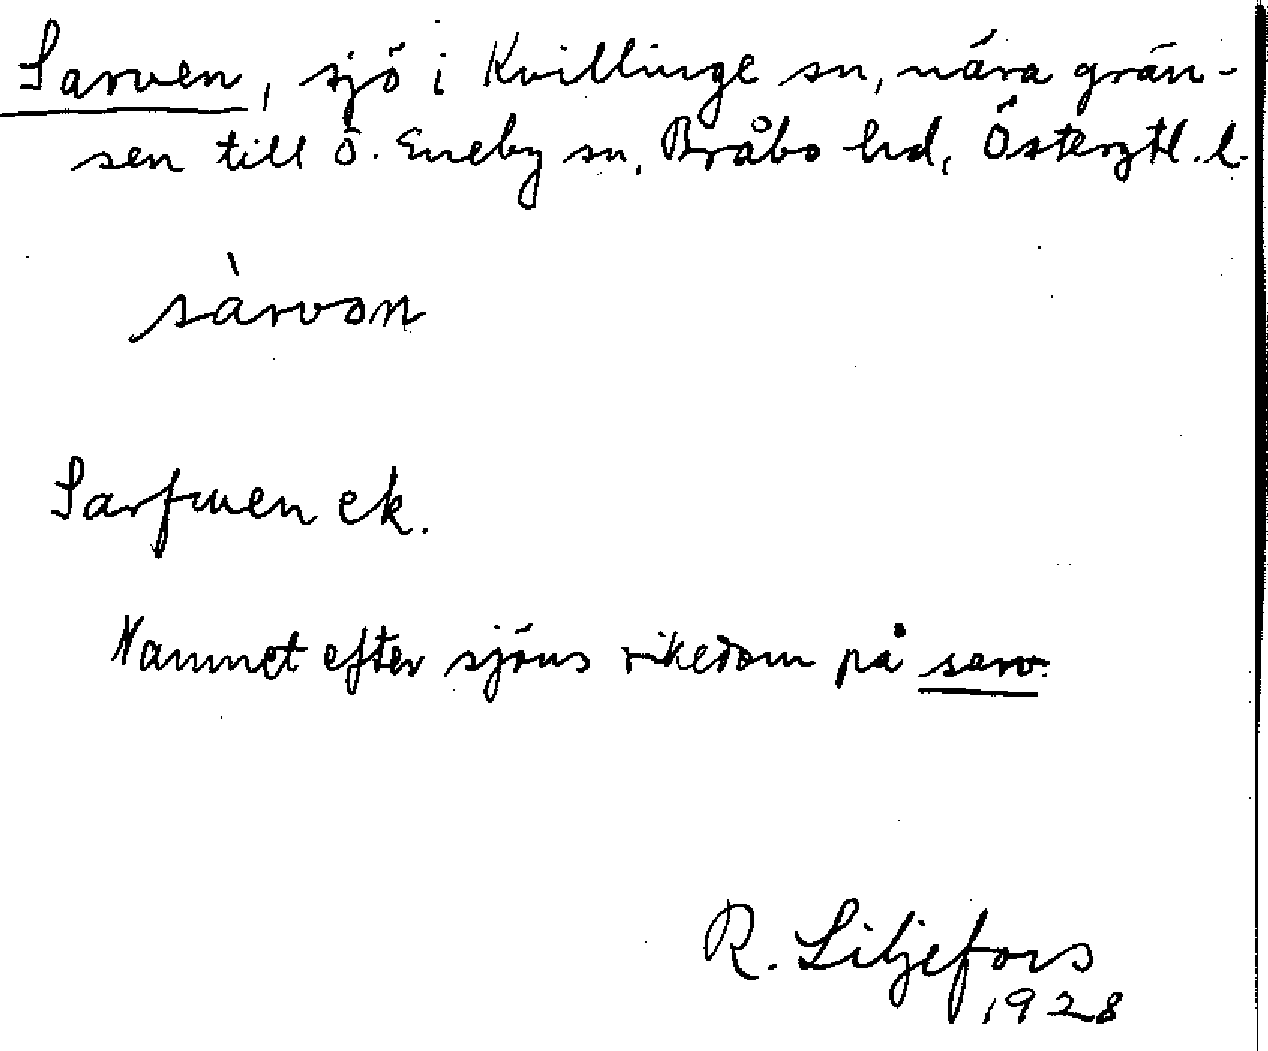 Sarven, sjö i Kvillinge sn, nära grän-
sen till Ö. Eneby sn, Bråbo hd, Östergtl. l.
sàrvan
Sarfwen ek.
Namnet efter sjöns rikedom på sarv.
R. Liljefors
1928